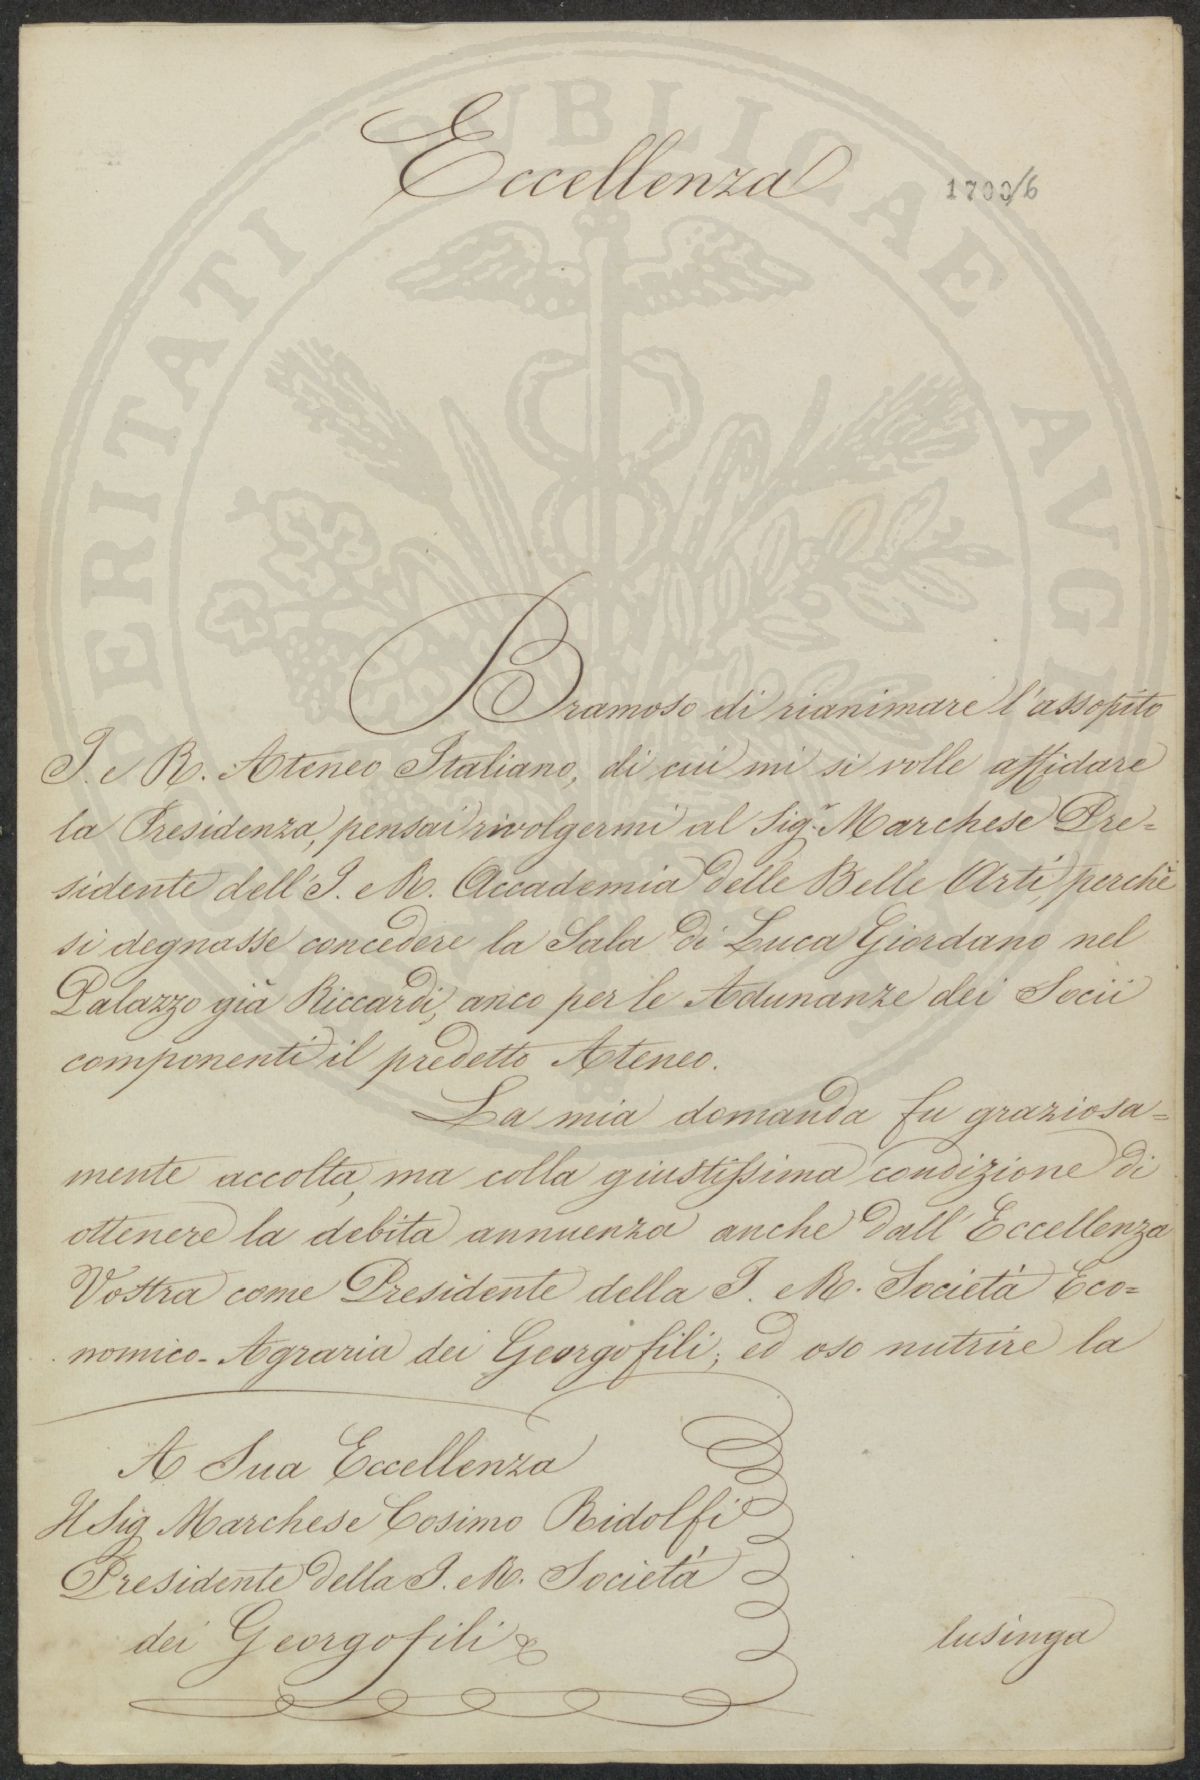 Eccellenza
1700/6
Bramoso di rianimare l'assopito
I. e R. Ateneo Italiano, di cui mi si volle affidare
la Presidenza, pensai rivolgermi al Sig.r Marchese Pre=
sidente dell'I. e R. Accademia delle Belle Arti, perchè
si degnasse concedere la Sala di Luca Giordano nel
Palazzo già Riccardi, anco per le Adunanze dei Socii
componenti il predetto Ateneo.
La mia domanda fu graziosa=
mente accolta, ma colla giustissima condizione di
ottenere la debita annuenza anche dall'Eccellenza
Vostra come Presidente della I. e R. Società Eco=
nomico-Agraria dei Georgofili; ed oso nutrire la
A Sua Eccellenza
Il Sig Marchese Cosimo Ridolfi
Presidente della I. e R. Società
dei Georgofili
lusinga
PROSPERITATI PUBLICAE AVGENDAE